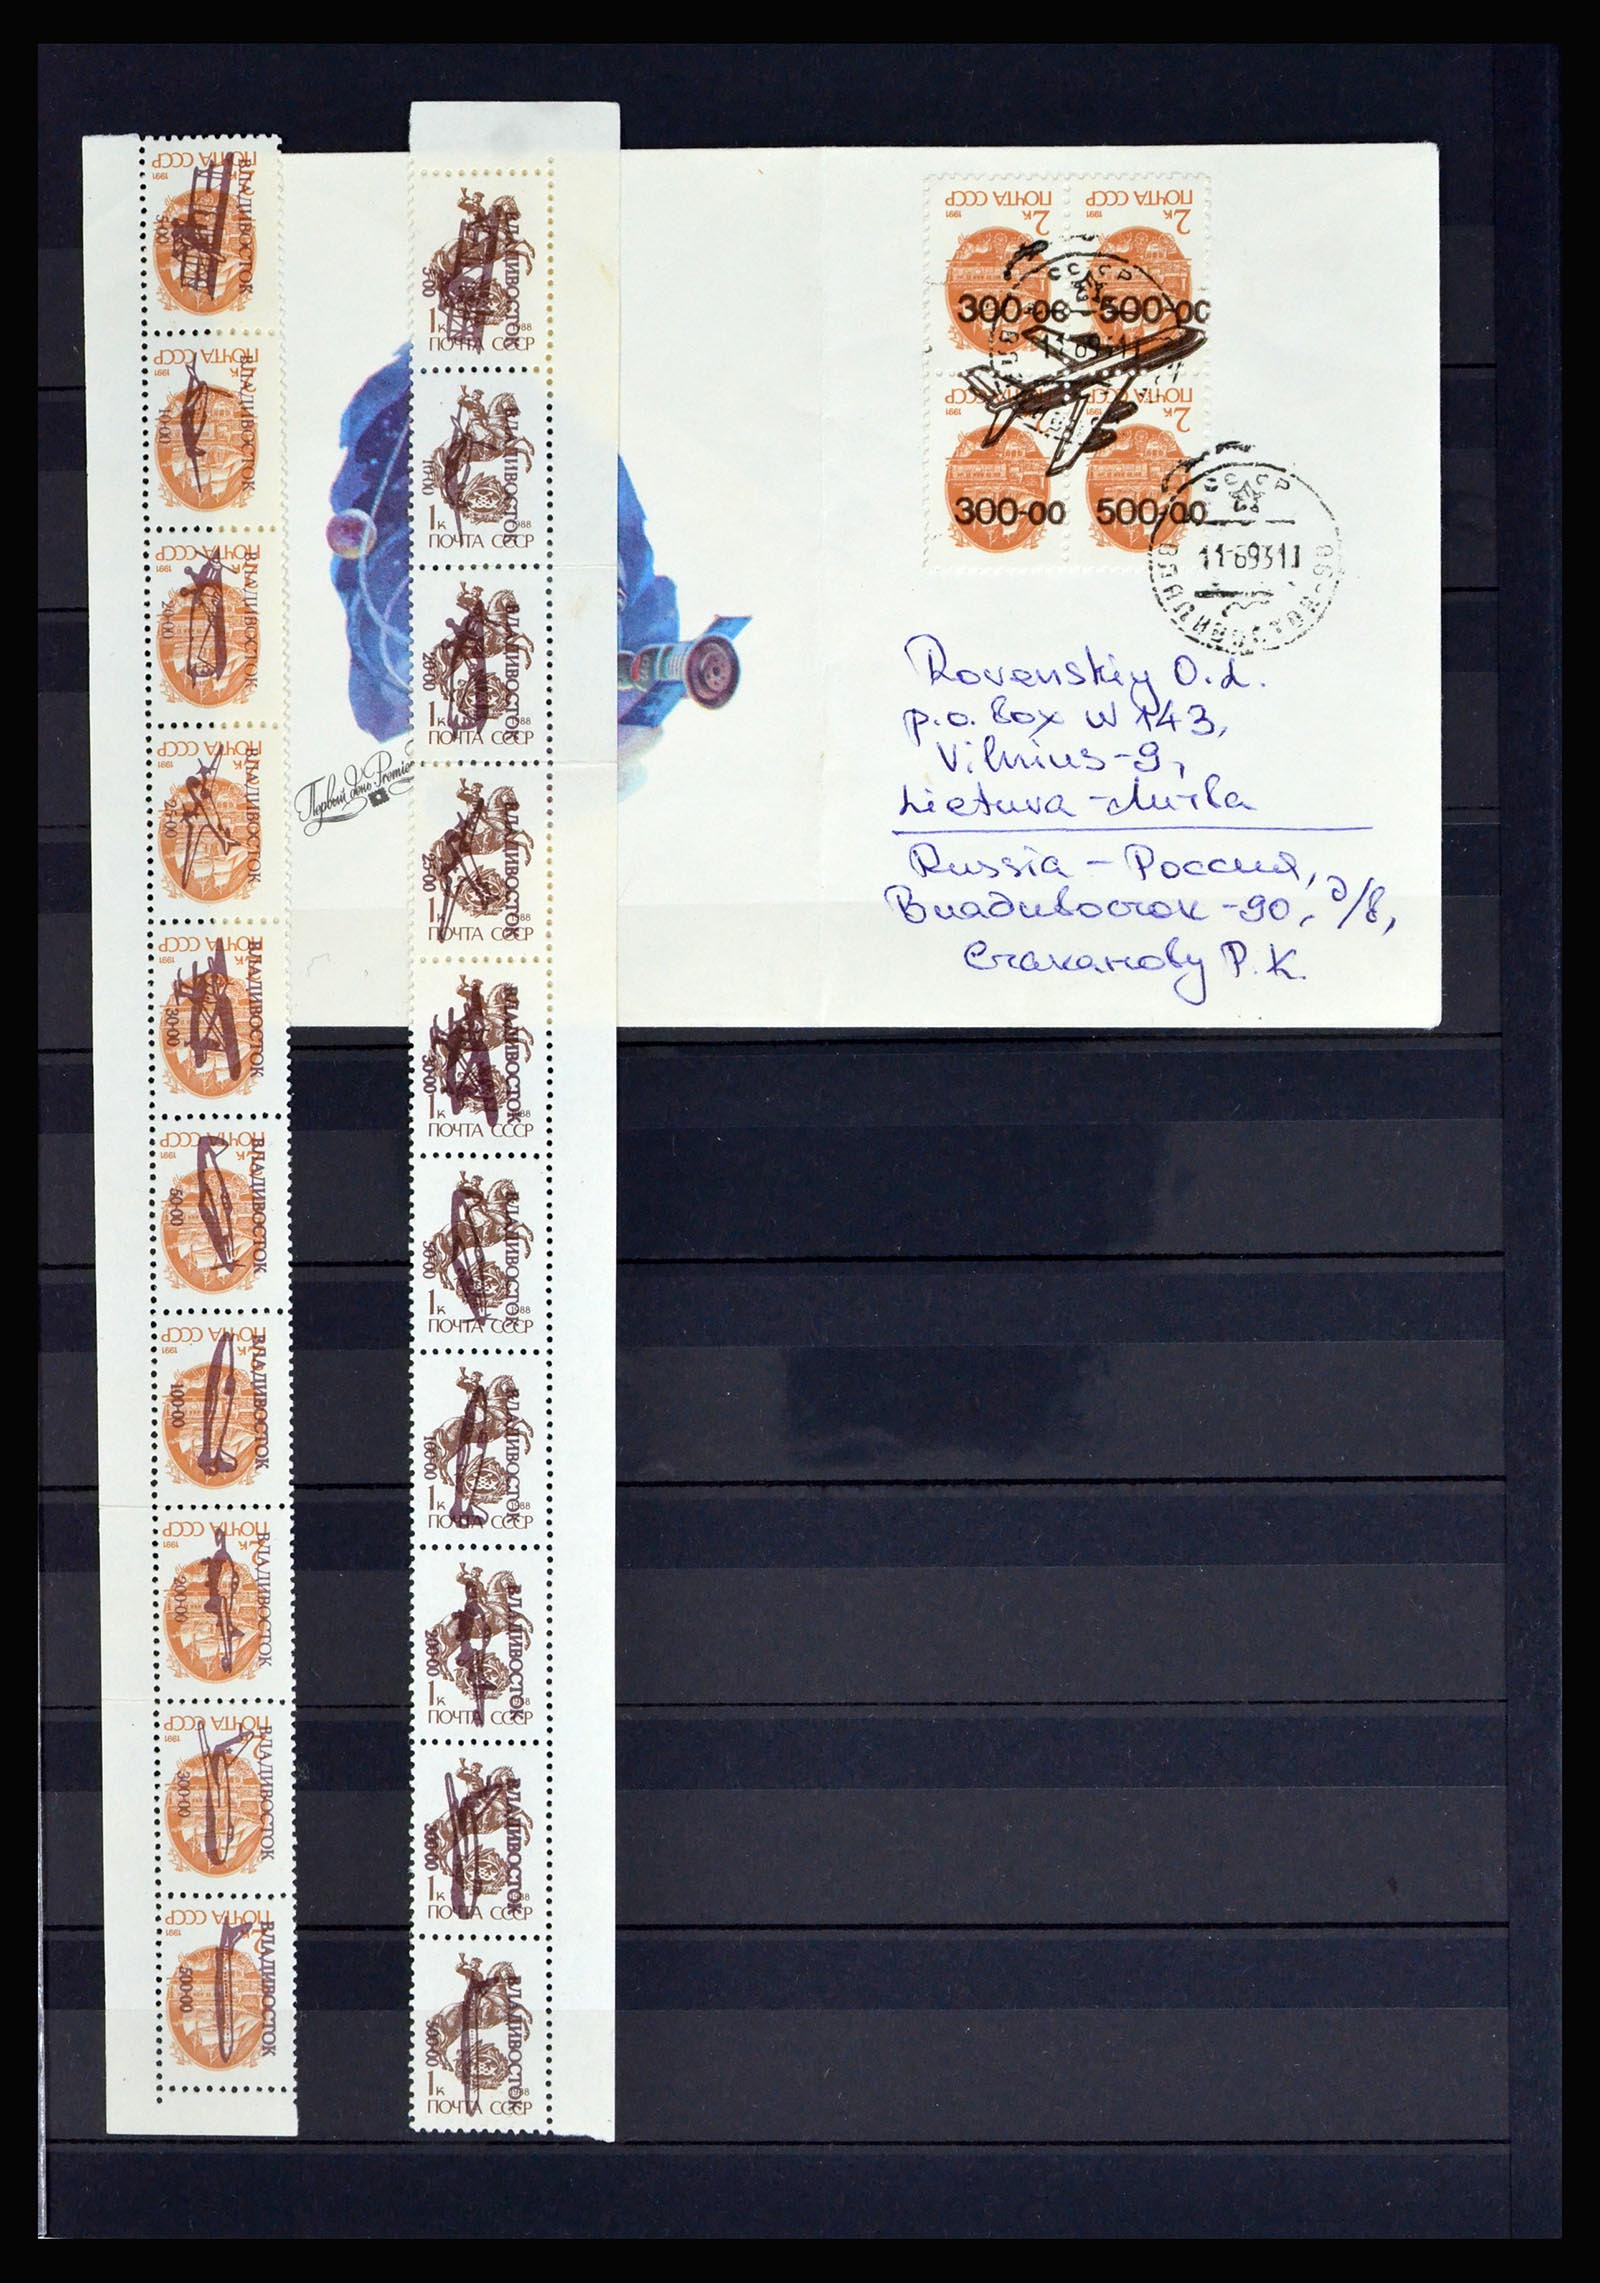 ПОЧТА СССР
1991
ВЛАДИВОСТОК
5-00
ПОЧТА СССР
1991
ВЛАДИВОСТОК
10-00
ПОЧТА СССР
1991
ВЛАДИВОСТОК
20-00
ПОЧТА СССР
1991
ВЛАДИВОСТОК
25-00
ПОЧТА СССР
1991
ВЛАДИВОСТОК
30-00
ПОЧТА СССР
1991
ВЛАДИВОСТОК
50-00
ПОЧТА СССР
1991
ВЛАДИВОСТОК
100-00
ПОЧТА СССР
1991
ВЛАДИВОСТОК
200-00
ПОЧТА СССР
1991
ВЛАДИВОСТОК
300-00
ПОЧТА СССР
1991
ВЛАДИВОСТОК
500-00
ВЛАДИВОСТОК
5-00
1к 1988
ПОЧТА СССР
ВЛАДИВОСТОК
10-00
1к 1988
ПОЧТА СССР
ВЛАДИВОСТОК
20-00
1к
ПОЧТА СССР
ВЛАДИВОСТОК
25-00
1к
ПОЧТА СССР
ВЛАДИВОСТОК
30-00
1к
ПОЧТА СССР
ВЛАДИВОСТОК
50-00
1к 1988
ПОЧТА СССР
ВЛАДИВОСТОК
100-00
1к 1988
ПОЧТА СССР
ВЛАДИВОСТОК
200-00
1к
ПОЧТА СССР
ВЛАДИВОСТОК
300-00
1к
ПОЧТА СССР
ВЛАДИВОСТОК
500-00
1к 1988
ПОЧТА СССР
Первый день Premier
2к 1991
ПОЧТА СССР
2к 1991
ПОЧТА СССР
300-00 500-00
2к 1991
ПОЧТА СССР
300-00 500-00
СССР
11-6931
СССР
11-6931
ВЛАДИВОСТОК-90
Rovenskiy O.L.
p.o. box N 143,
Vilnius-9,
Lietuva - Литва
Russia - Россия,
Владивосток-90, д/в,
Стаканову Р.К.